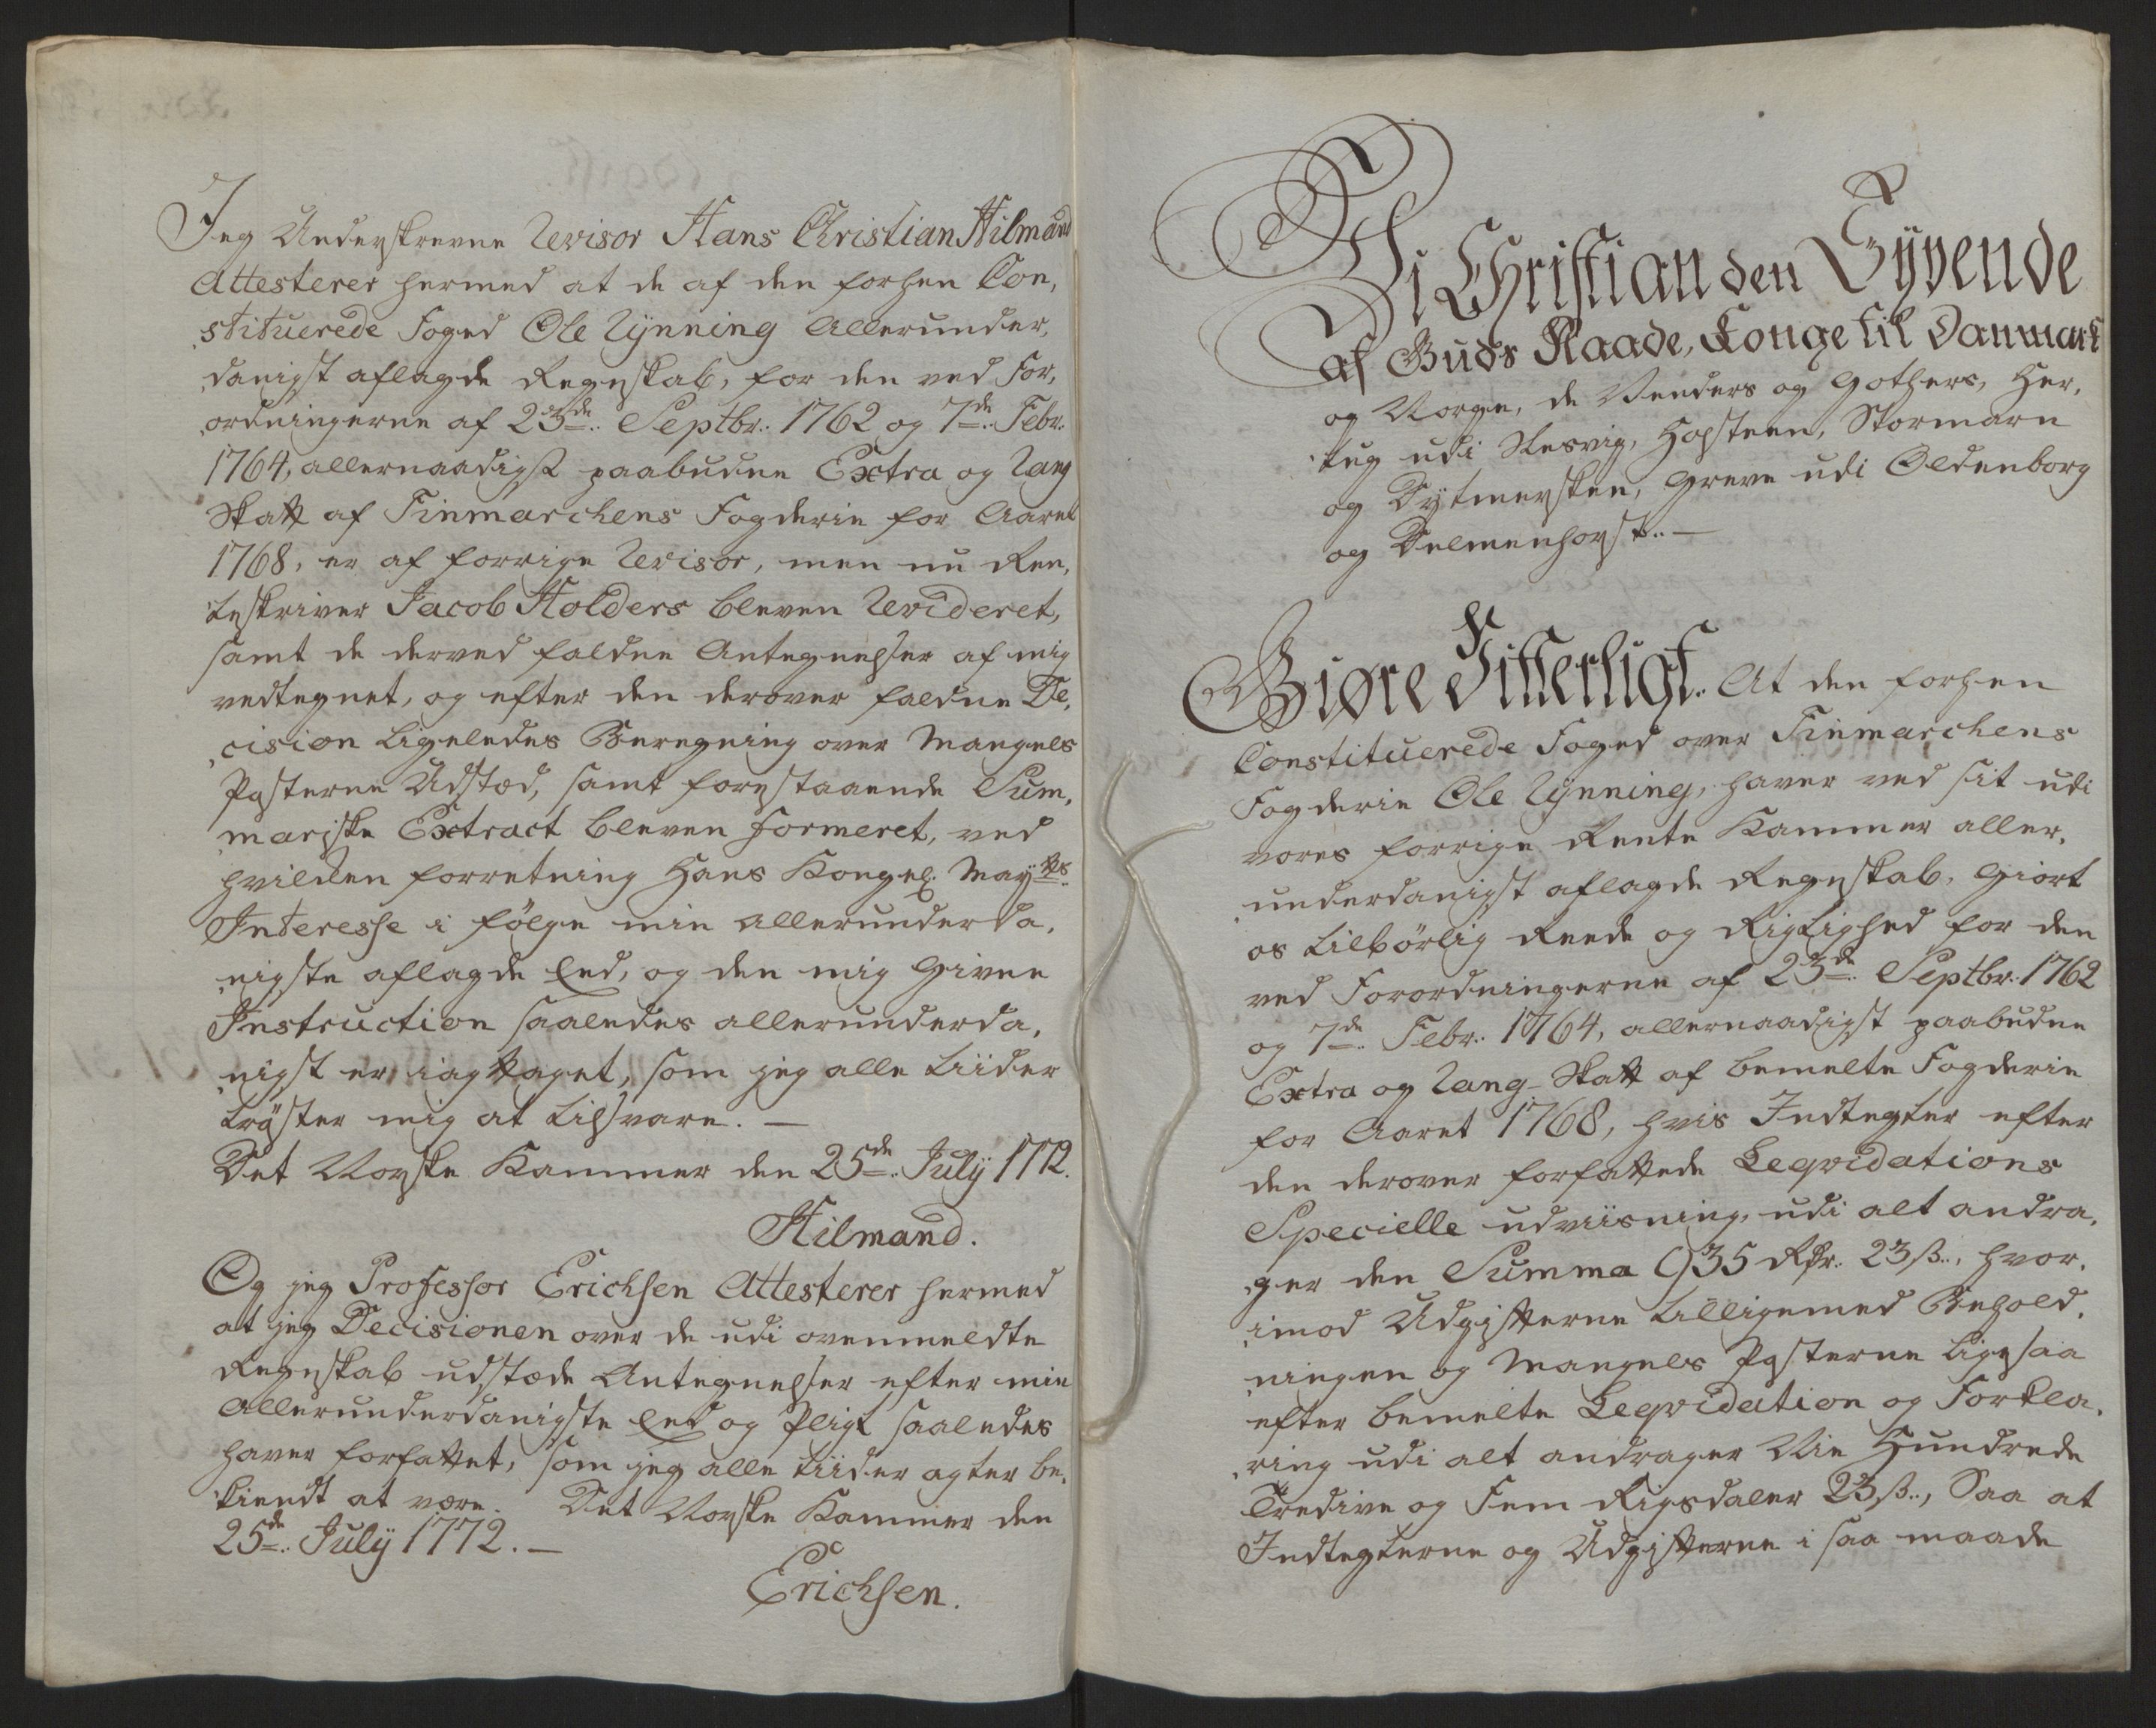 Jeg Underskrevne Revisor Hans Christian Hilmand
Attesterer hermed at de af den forhen Con,
stituerede Foged Ole Lynning Allerunder,
danigst aflagde Regnskab, for den ved For,
ordningerne af 23de Septbr: 1762 og 7de Febr.
1764, allernaadigst paabudne Extra og Rang
Skatt af Finmarchens Fogderie for Aaret
1768, er af forrige Revisor, men nu Ren,
teskriver Jacob Holders bleven Revideret,
samt de derved faldne Antegnelser af mig
vedtegnet, og efter den derover faldne De,
cision ligeledes Beregning over Mangels
Posterne Udstæd, samt forestaaende Sum,
mariske Extract bleven formeret, ved
hvilken forretning Hans Kongel: Mayts
Interesse i følge min allerunderda,
nigste aflagde Eed, og den mig Given
Instruction saaledes allerunderda,
nigst er iagttaget, som jeg alle tiider
trøster mig at tilsvare. —
Det Norske Kammer den 25de July 1772.
Hilmand.
Og jeg Professor Erichsen Attesterer hermed
at jeg Decisionen over de udi ovenmeldte
Regnskab udstæde Antegnelser efter min
Allerunderdanigste Eed og Pligt saaledes
haver forfattet, som jeg alle tiider agter be,
kiendt at være. Det Norske Kammer den
25de July 1772. —
Erichsen.
Vi Christian den Syvende
af Guds Naade, Konge til Danmark
og Norge, de Venders og Gothers, Her,
tug udi Slesvig, Holsteen, Stormarn
og Dytmersken, Greve udi Oldenborg
og Delmenhorst. —
Giøre Vitterligt. At den forhen
Constituerede Foged over Finmarchens
Fogderie Ole Lynning, haver ved sit udi
vores forrige Rente Kammer aller,
underdanigst aflagde Regnskab, Giort
os tilbørlig Reede og Rigtighed for den
ved Forordningerne af 23de Septbr: 1762
og 7de Febr: 1764, allernaadigst paabudne
Extra og Rang-Skatt af bemelte Fogderie
for Aaret 1768, hvis Indtegter efter
den derover forfattede Leqvidations
Specielle udviisning, udi alt andra,
ger den Summa 935 Rdr. 23 ß., hvor,
imod Udgifterne tilligemed Behold,
ningen og Mangels Posterne ligesaa
efter bemelte Leqvidation og Forkla,
ring udi alt andrager Nie Hundrede
Tredive og Fem Rigsdaler 23 ß., Saa at
Indtegterne og Udgifterne i saa maade